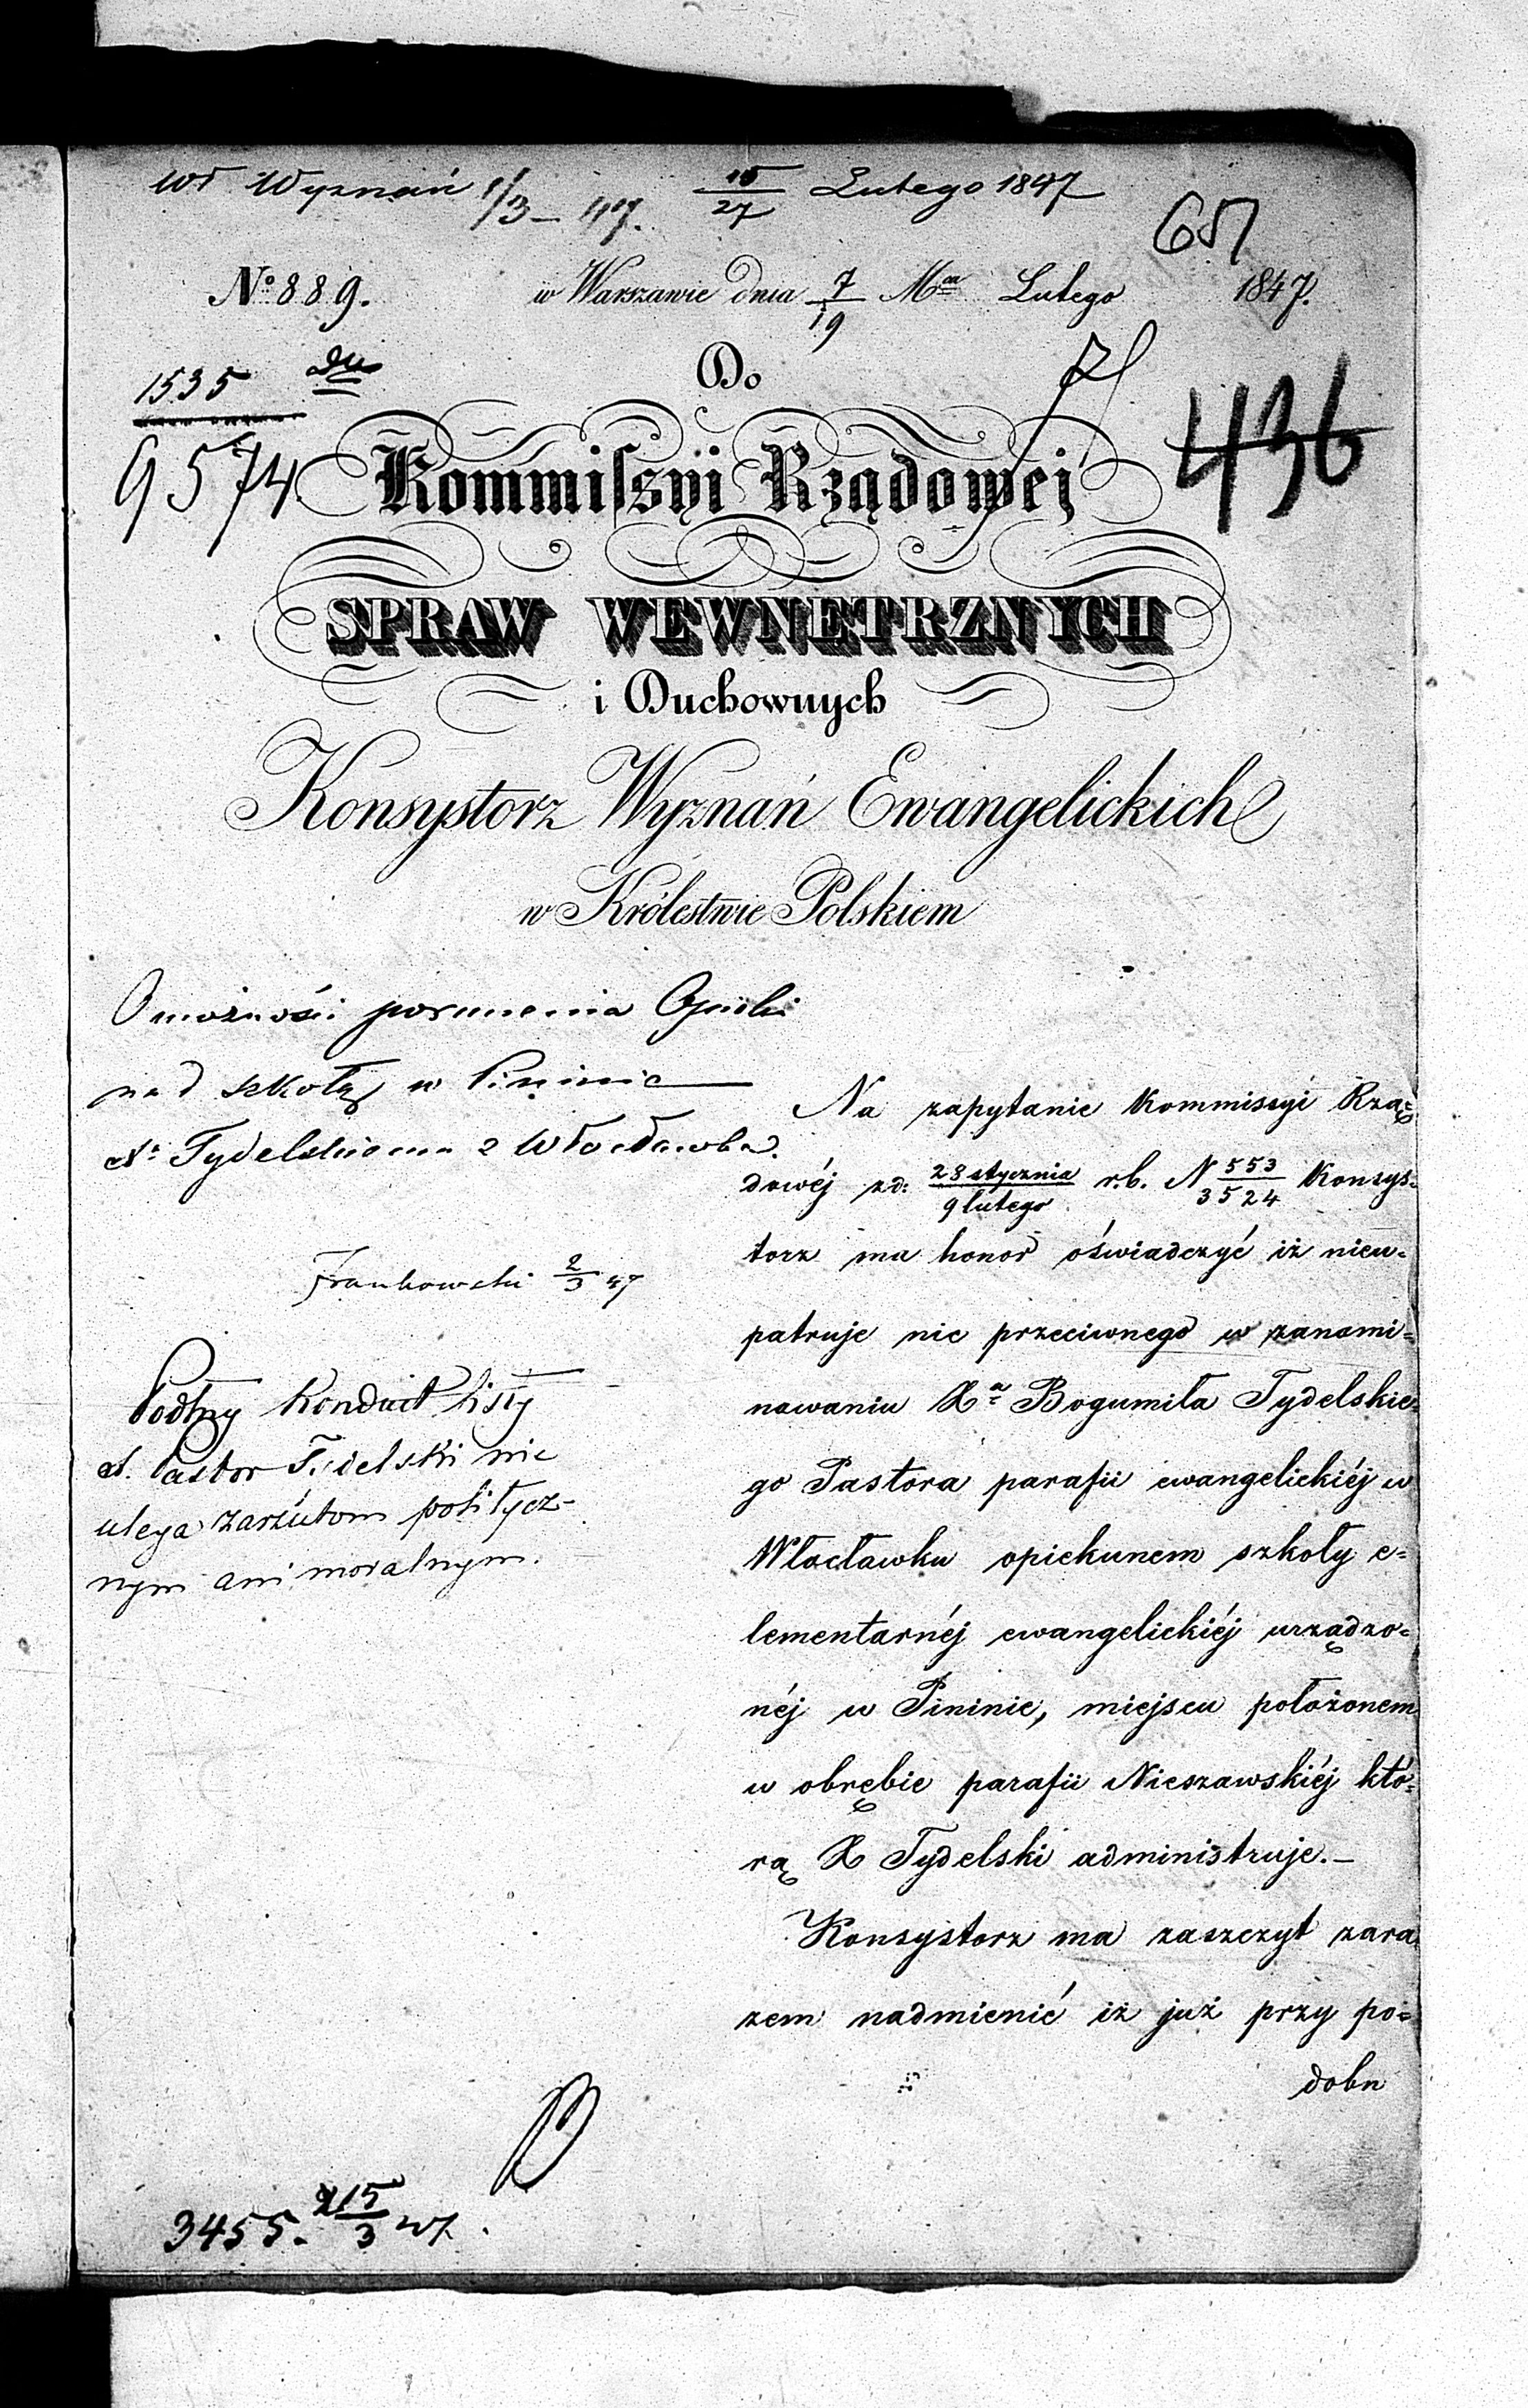 Wł Wyznań 1/3 – 47. 15/27 Lutego 1847
No. 889. w Warszawie dnia 7/19 Mca Lutego 1847.
1535
9574
Do
436
Kommissyi Rządowej
SPRAW WEWNETRZNYCH
i Duchownych
Konsystorz Wyznań Ewangelickich
w Królestwie Polskiem
O możności poruczenia Opieki
nad szkołą w Pininie
Xs Tydelskiemu z Włocławka.
Frankowski 2/3 47
Podług Konduit Listy
X. Pastor Tydelski nie
ulega zarzutom politycz-
nym ani moralnym.
Na zapytanie Kommissyi Rzą=
dowéj z d: 28 stycznia/9 lutego r.b. N 553/3524 Konsys=
torz ma honor oświadczyć iż nieu=
patruje nic przeciwnego w zanomi=
nowaniu Xa Bogumiła Tydelskie=
go Pastora parafii ewangelickiéj w
Włocławku opiekunem szkoły e=
lementarnéj ewangelickiéj urządzo=
néj w Pininie, miejscu położonem
w obrębie parafii Nieszawskiéj któ=
rą X Tydelski administruje.–
Konsystorz ma zaszczyt zara
zem nadmienić iż już przy po=
dobn
3455. 15/3 47.